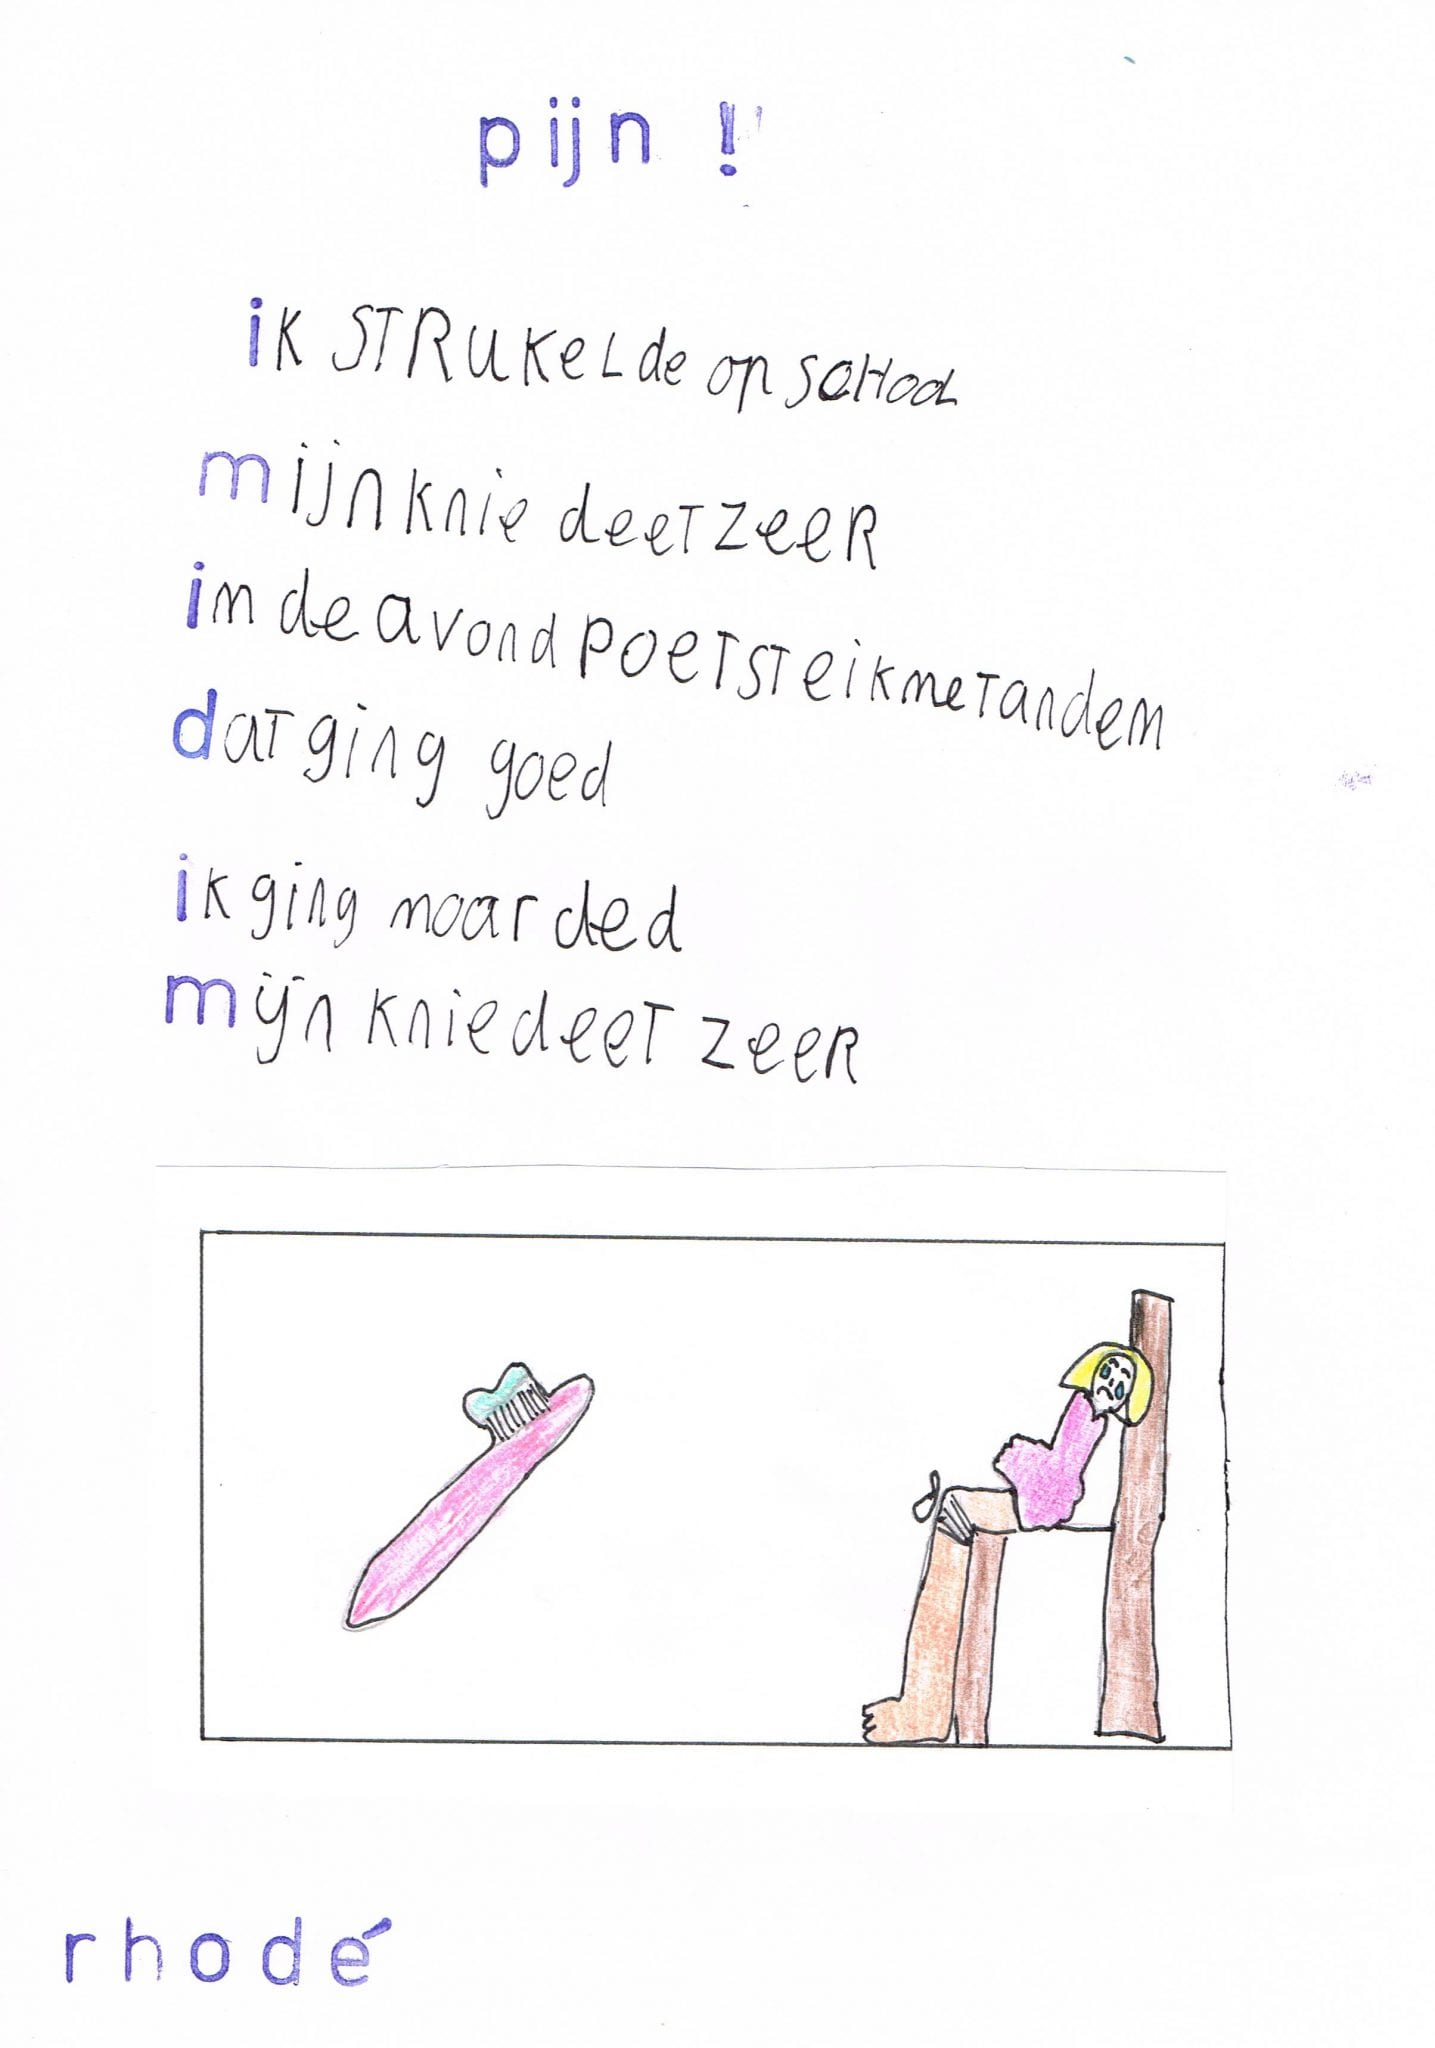 pijn !
ik STRUKeLde op scHool
mijn knie deeT zeeR
in de avond poeTsTe ik me Tanden
daT ging goed
ik ging naar ded
mijn knie deeT zeeR
rhodé